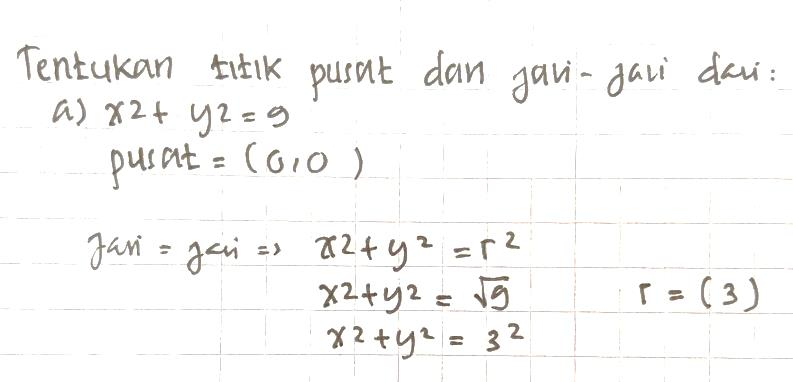 Tentukan titik pusat dan jari-jari dari:
a) x2+ y2=9
pusat = (0,0)
Jari = jari => x2+y2 = r2
x2+y2 = √9 r = (3)
x2+y2 = 32